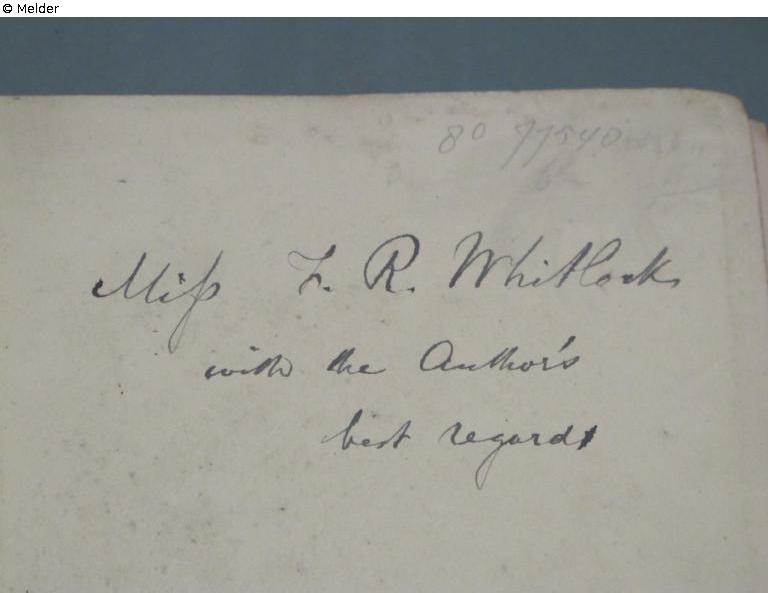 © Melder
80 77540
Miſs F. R. Whitlock
with the Author's
best regards